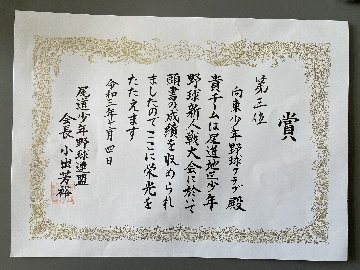 賞
第三位
向東少年野球クラブ 殿
貴チームは尾道地区少年
野球新人戦大会に於いて
頭書の成績を収められ
ましたのでここに栄光を
たたえます
令和三年 月 四日
尾道少年野球連盟
会長 小出芳裕